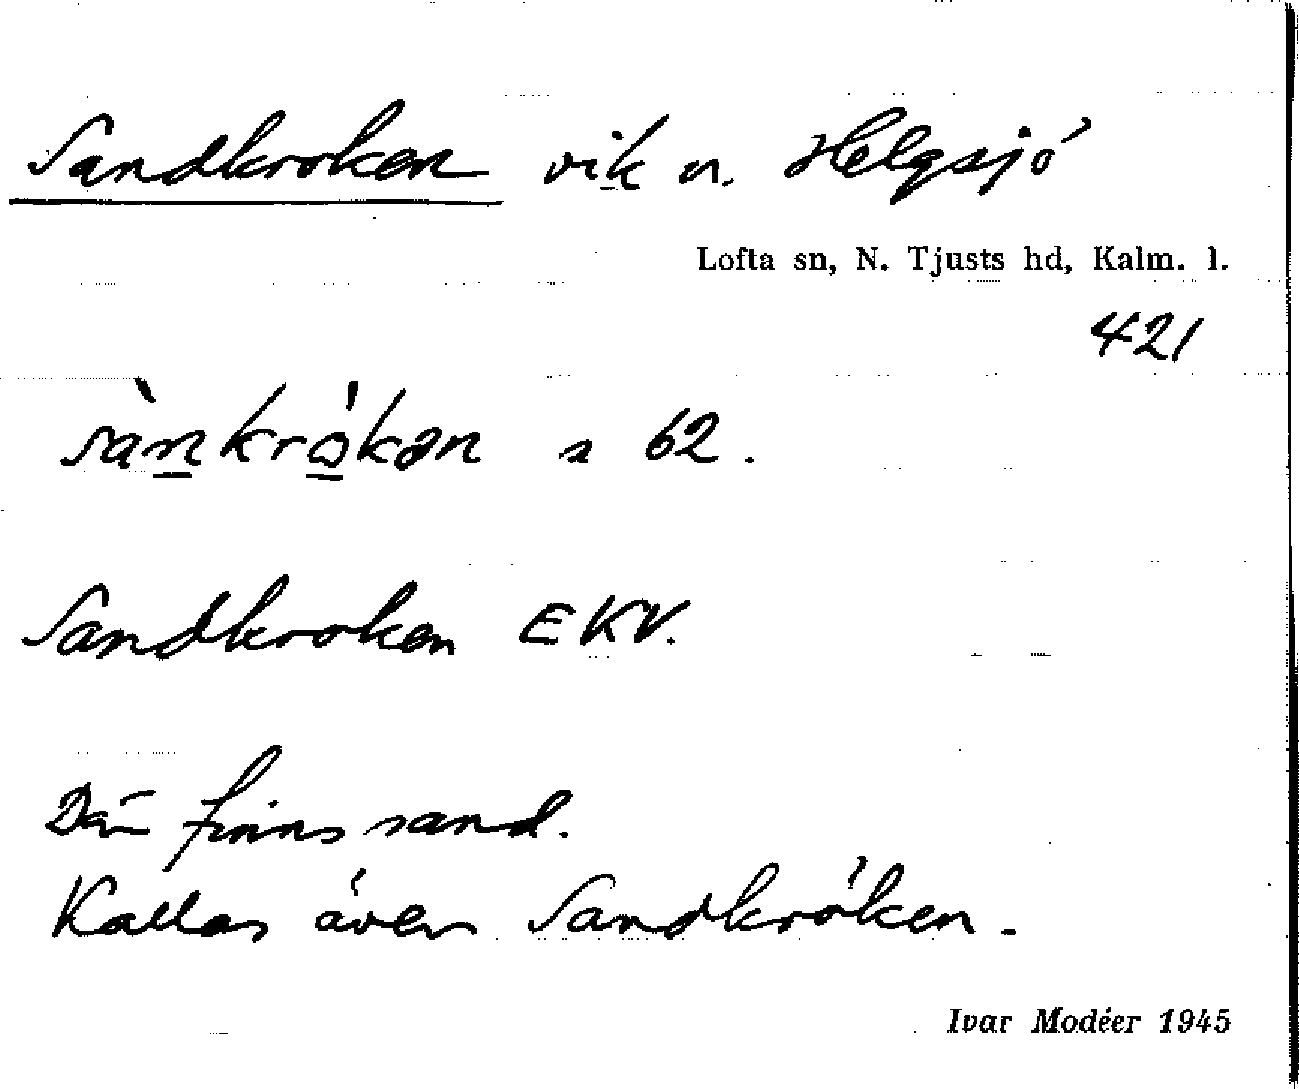 Sandkroken vik n. Helgsjö
Lofta sn, N. Tjusts hd, Kalm. l.
421
sànkrókən s 62.
Sandkroken EKV.
Där finns sand.
Kallas även Sandkröken.
Ivar Modéer 1945